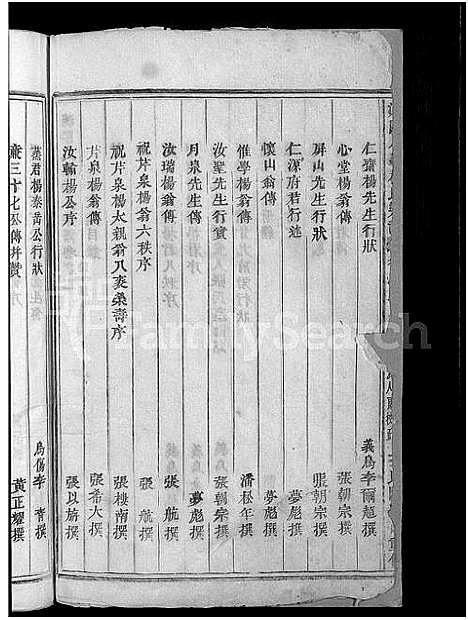 仁齋楊先生行狀 義烏李爾超撰
心堂楊翁傳 張朝宗撰
屏山先生行狀 張朝宗撰
仁源府君行述 夢彪撰
懷山翁傳 夢彪撰
惟學楊翁傳 潘松年撰
汝聖先生行實 張朝宗撰
月泉先生傳 夢彪撰
汝瑞楊翁傳 張航撰
祝芹泉楊翁六秩序 張航撰
祝芹泉楊太親翁八袠榮壽序 張樓南撰
芹泉楊翁傳 張希大撰
汝輸楊公序 張以旃撰
燕君楊泰岳公行狀 烏傷李青撰
濂三十七公傳并贊 黃正耀撰
FamilySearch